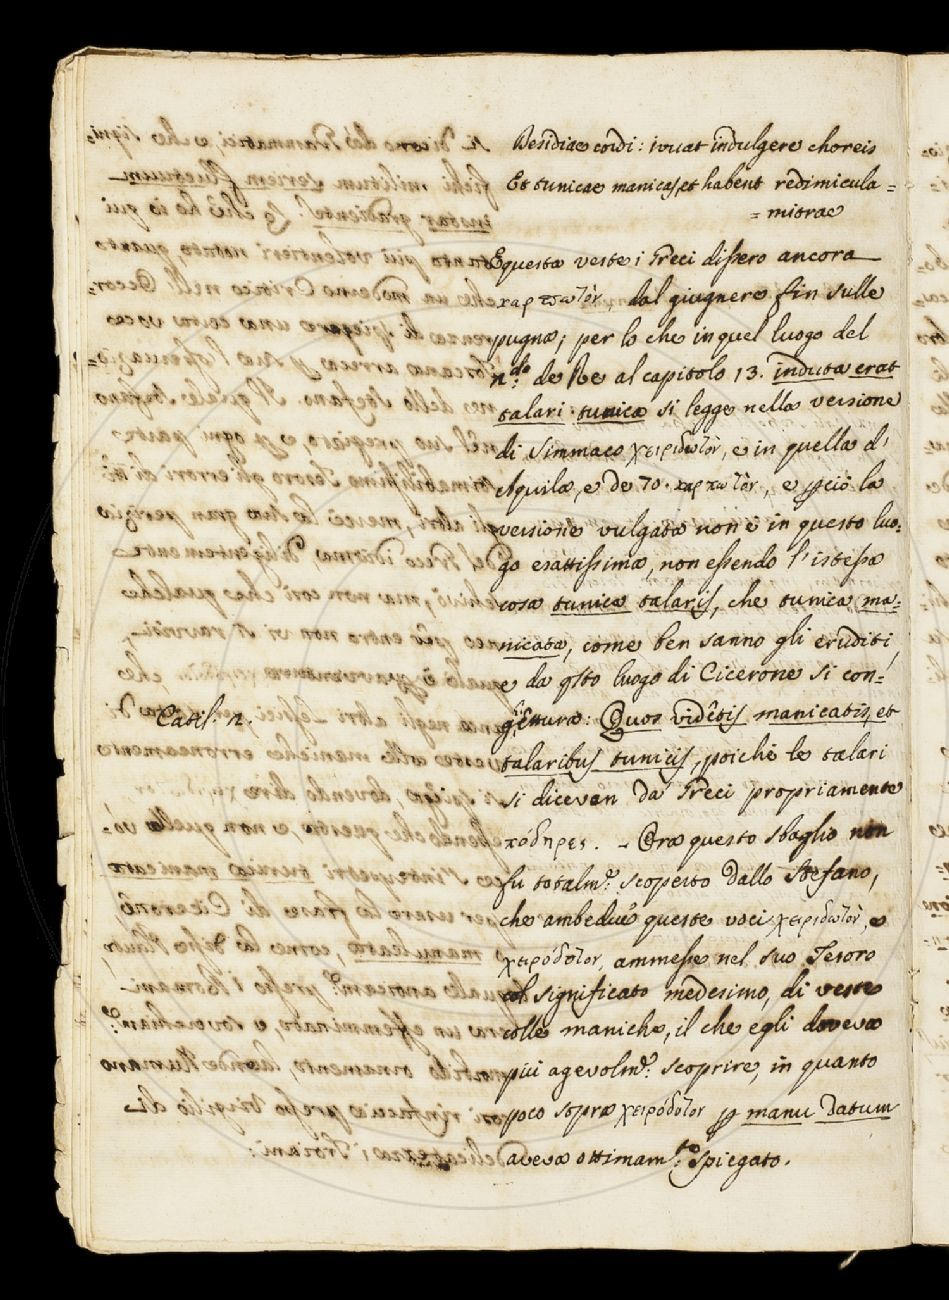 Desidiae cordi: iuvat indulgere choreis
Et tunicae manicas, et habent redimicula =
= mitrae
E questa veste i Greci dissero ancora
καρπωτὸν, dal giugnere fin sulle
pugna; per lo che in quel luogo del
n.do de Re al capitolo 13. induta erat
talari tunica si legge nella versione
di Simmaco χειριδωτὸν, e in quella d'
Aquila, e de 70. καρπωτὸν, e p ciò la
versione vulgata non è in questo luo-
go esattissima, non essendo l'istessa
cosa tunica talaris, che tunica ma-
nicata, come ben sanno gli eruditi,
e da qsto luogo di Cicerone si con-
Catil. 2.
gettura: Quos videtis manicatis, et
talaribus tuniciis, poichè le talari
si dicevan da' Greci propriamente
πόδηρες. - Ora questo sbaglio non
fu totalm.e scoperto dallo Stefano,
che ambedue queste voci χειριδωτὸν, e
χειρόδοτον, ammesse nel suo Tesoro
col significato medesimo, di veste
colle maniche, il che egli doveva
più agevolm.e scoprire, in quanto
poco sopra χειρόδοτον p manu datum
aveva ottimam.te spiegato.